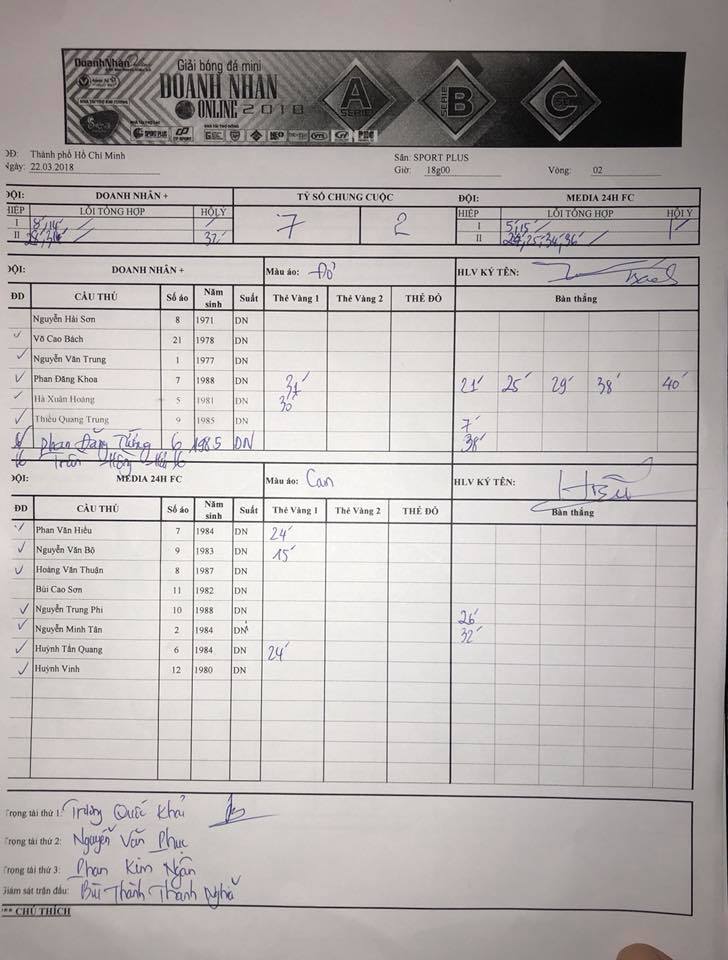 DoanhNhanOnline
Giải bóng đá mini
DOANH NHÂN
ONLINE 2018
A SERIE
B SERIE
C
SPORT PLUS
ĐĐ: Thành phố Hồ Chí Minh Sân: SPORT PLUS
Ngày: 22.03.2018 Giờ: 18g00 Vòng: 02
ĐỘI: DOANH NHÂN + TỶ SỐ CHUNG CUỘC ĐỘI: MEDIA 24H FC
HIỆP LỖI TỔNG HỢP HỘI Ý 7 2 HIỆP LỖI TỔNG HỢP HỘI Ý
I 8' 14' I 5' 15'
II 37' II 25' 34' 36'
ĐỘI: DOANH NHÂN + Màu áo: Đỏ HLV KÝ TÊN: Bách
ĐD CẦU THỦ Số áo Năm sinh Suất Thẻ Vàng 1 Thẻ Vàng 2 THẺ ĐỎ Bàn thắng
Nguyễn Hải Sơn 8 1971 DN
Võ Cao Bách 21 1978 DN
Nguyễn Văn Trung 1 1977 DN
Phan Đăng Khoa 7 1988 DN 31' 21' 25' 29' 38' 40'
Hà Xuân Hoàng 5 1981 DN 30'
Thiều Quang Trung 9 1985 DN 7'
Phan Đăng 6 1985 DN 38'
Trần 16
ĐỘI: MEDIA 24H FC Màu áo: Cam HLV KÝ TÊN: Hiếu
ĐD CẦU THỦ Số áo Năm sinh Suất Thẻ Vàng 1 Thẻ Vàng 2 THẺ ĐỎ Bàn thắng
Phan Văn Hiếu 7 1984 DN 24'
Nguyễn Văn Bộ 9 1983 DN 15'
Hoàng Văn Thuận 8 1987 DN
Bùi Cao Sơn 11 1982 DN
Nguyễn Trung Phi 10 1988 DN 26'
Nguyễn Minh Tân 2 1984 DN 32'
Huỳnh Tấn Quang 6 1984 DN 24'
Huỳnh Vinh 12 1980 DN
Trọng tài thứ 1: Trương Quốc Khải
Trọng tài thứ 2: Nguyễn Văn Phục
Trọng tài thứ 3: Phan Kim Ngân
Giám sát trận đấu: Bùi Thành Thanh Nghĩa
*** CHÚ THÍCH